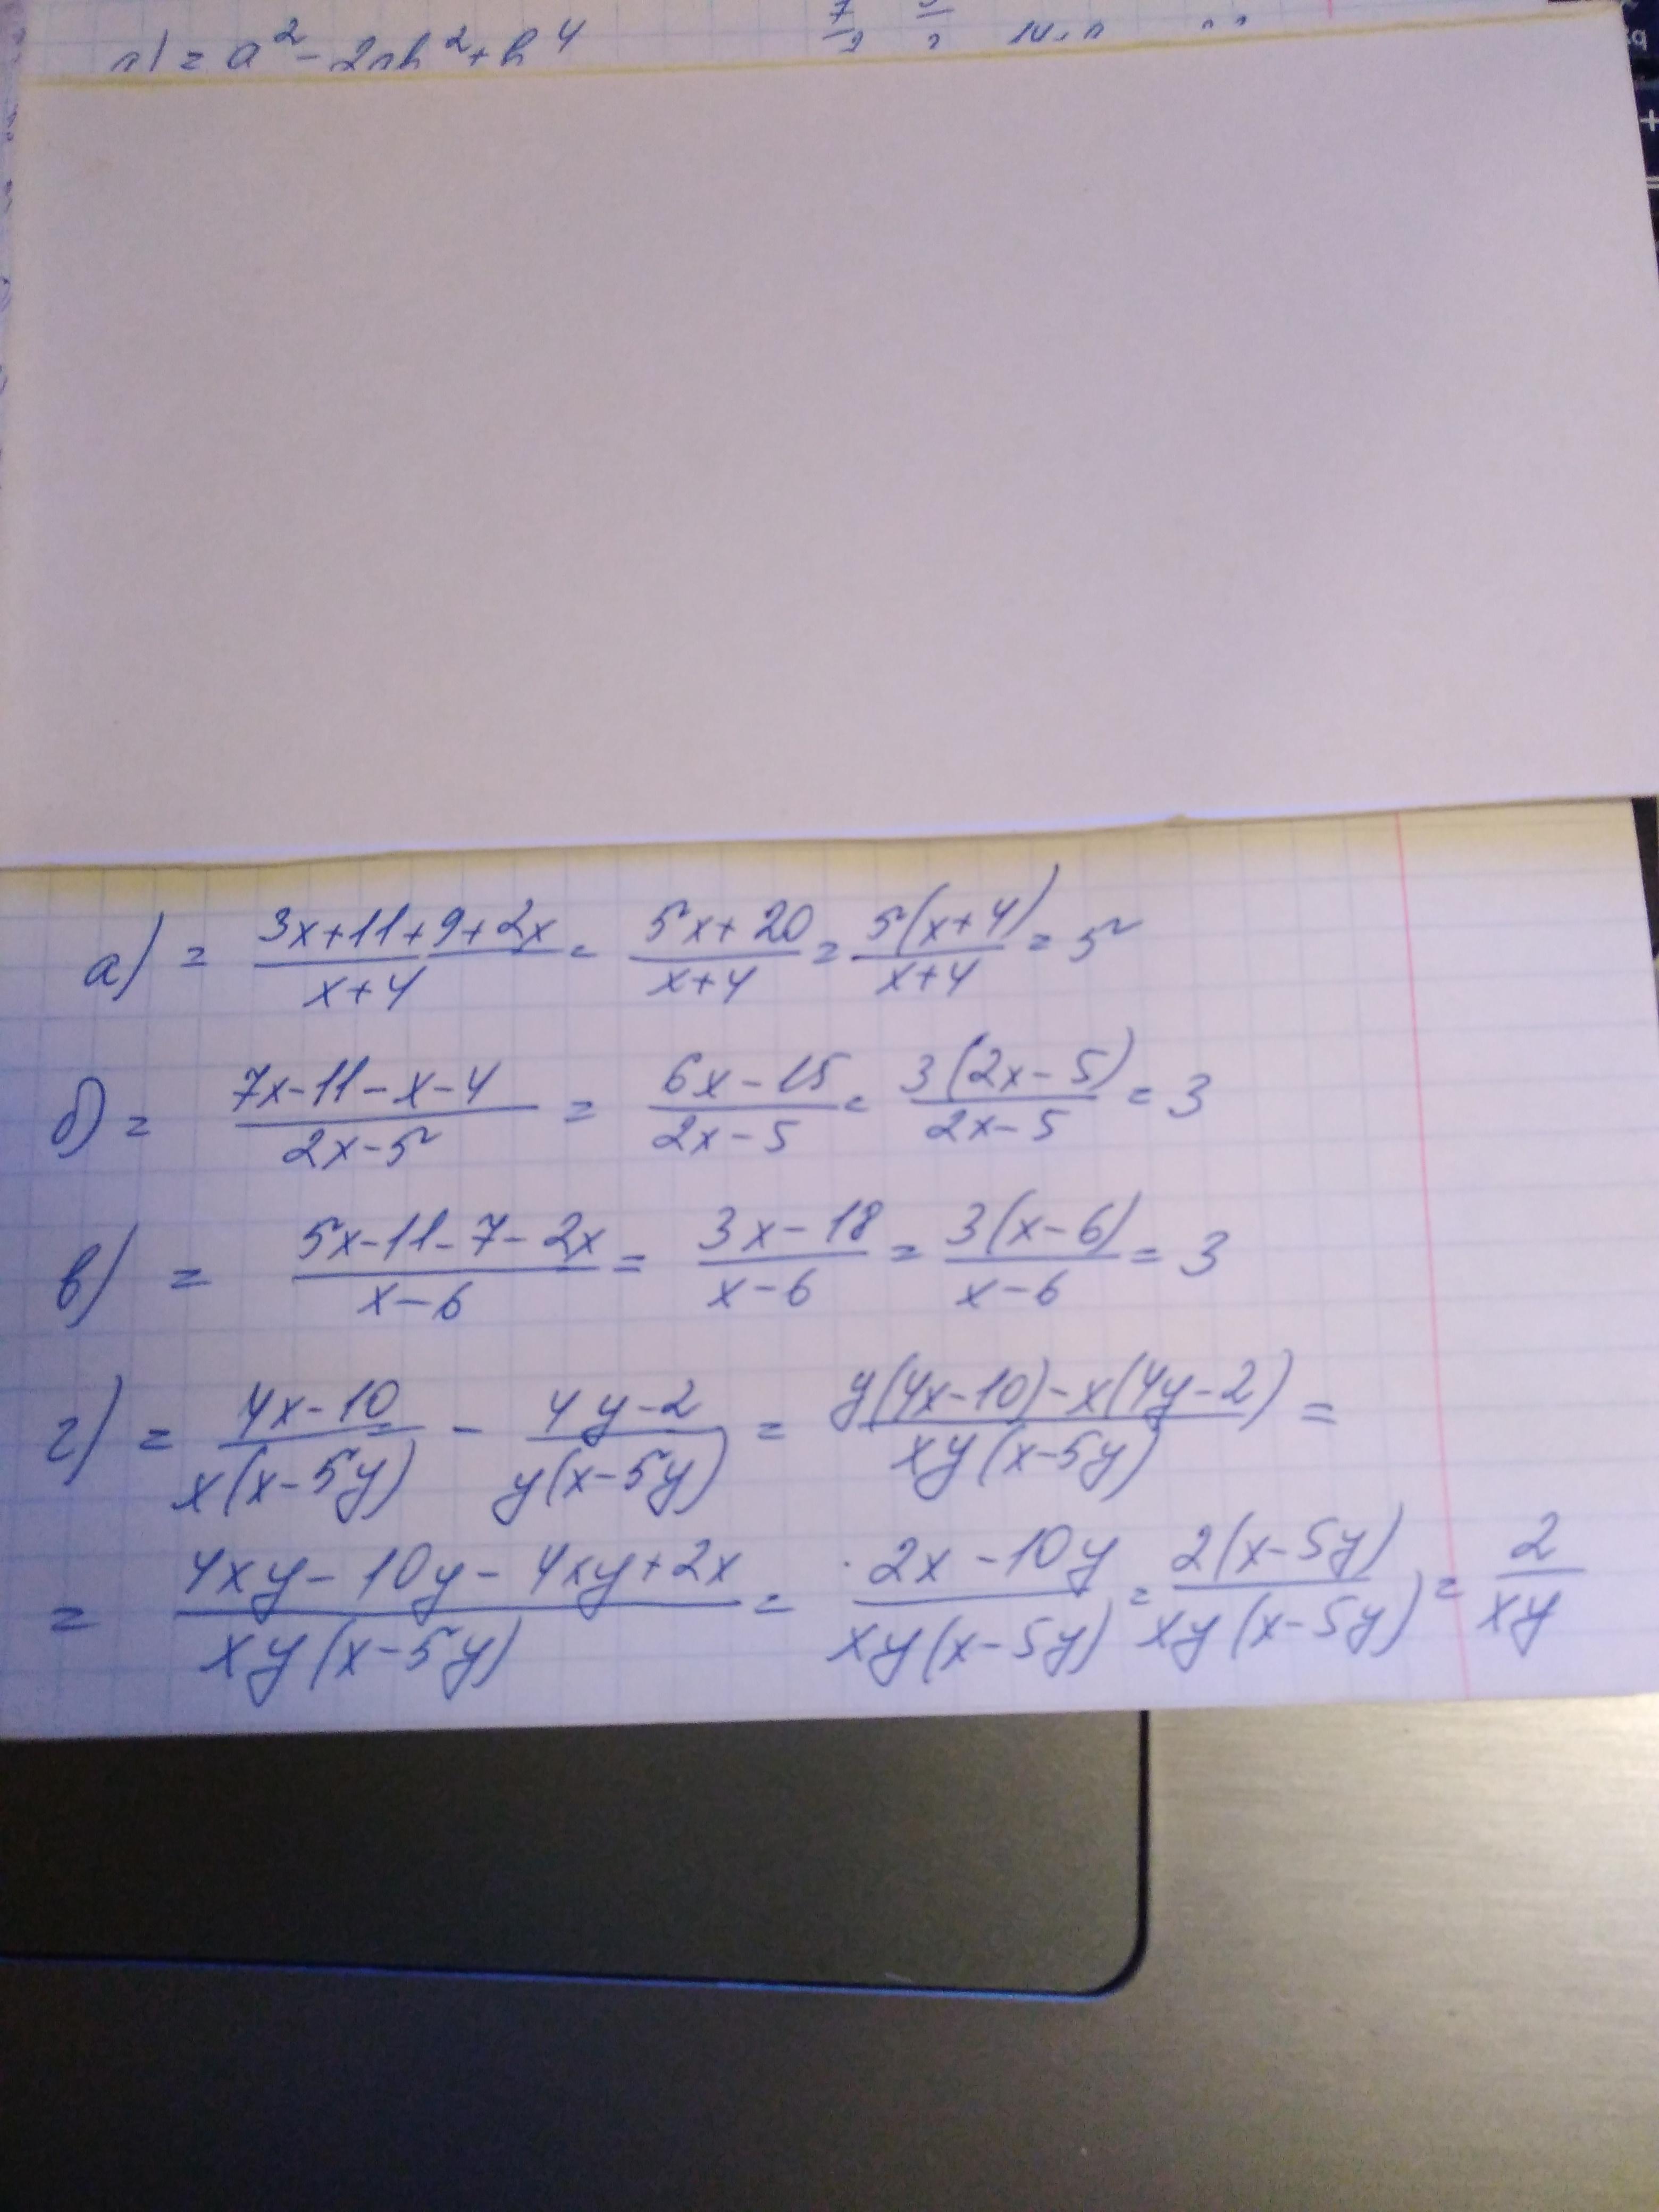 = a² - 2ab² + b⁴
а) = (3x+11+9+2x)/(x+4) = (5x+20)/(x+4) = 5(x+4)/(x+4) = 5
б) = (7x-11-x-4)/(2x-5) = (6x-15)/(2x-5) = 3(2x-5)/(2x-5) = 3
в) = (5x-11-7-2x)/(x-6) = (3x-18)/(x-6) = 3(x-6)/(x-6) = 3
г) = (4x-10)/(x(x-5y)) - (4y-2)/(y(x-5y)) = (y(4x-10)-x(4y-2))/(xy(x-5y)) =
= (4xy-10y-4xy+2x)/(xy(x-5y)) = (2x-10y)/(xy(x-5y)) = 2(x-5y)/(xy(x-5y)) = 2/(xy)